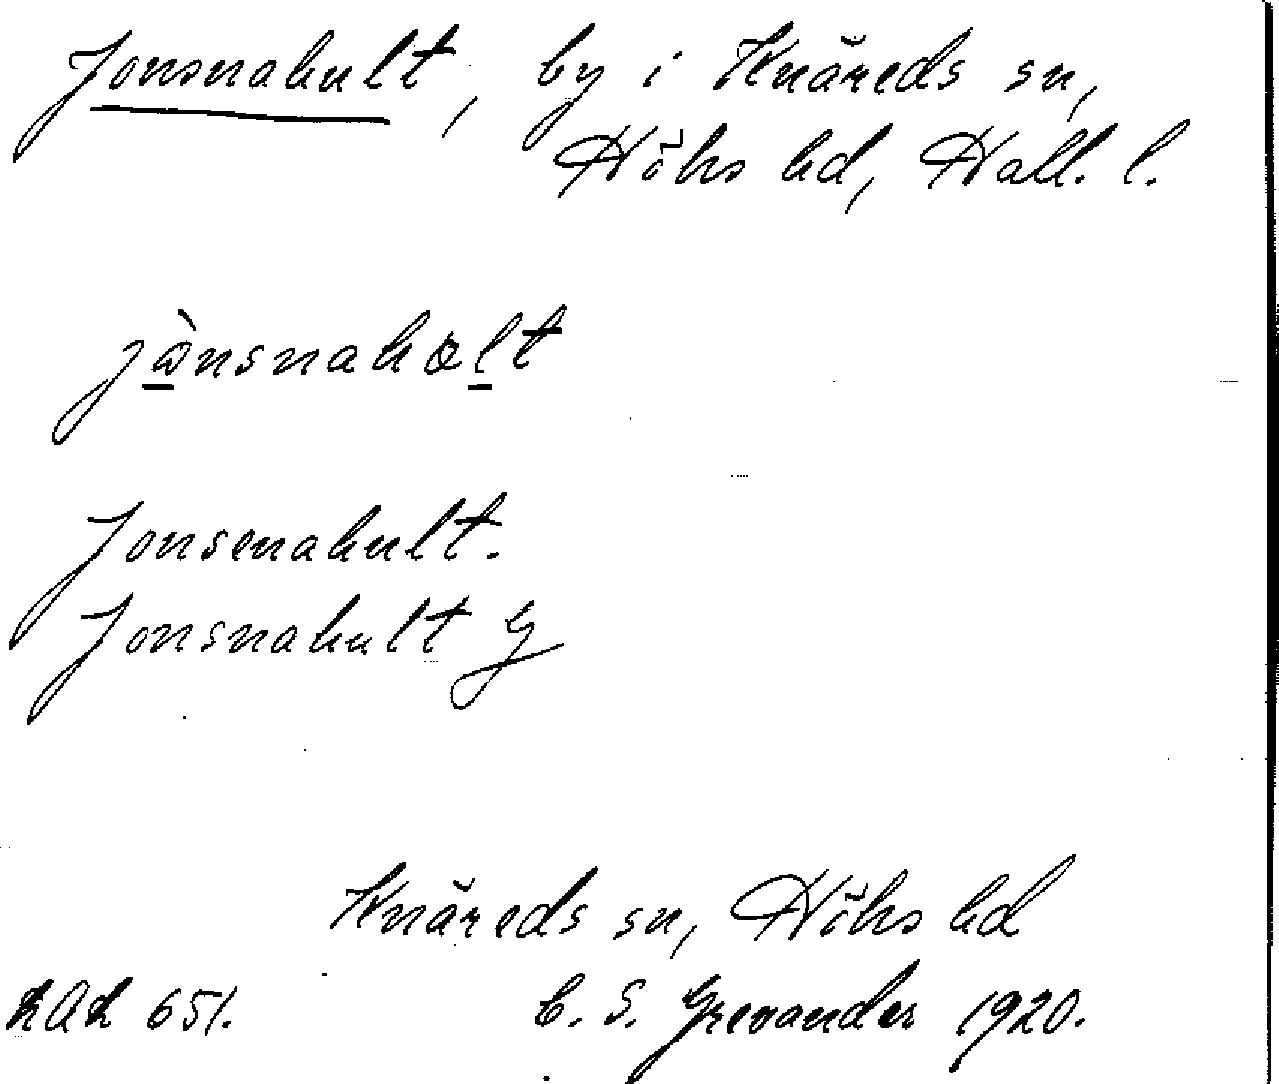 Jonsnahult, by i Knäreds sn,
Höks hd, Hall. l.
jò̱nsnahol̲t
Jonsenahult.
Jonsnahult G
Knäreds sn, Höks hd
651. C. S. Grevander 1920.